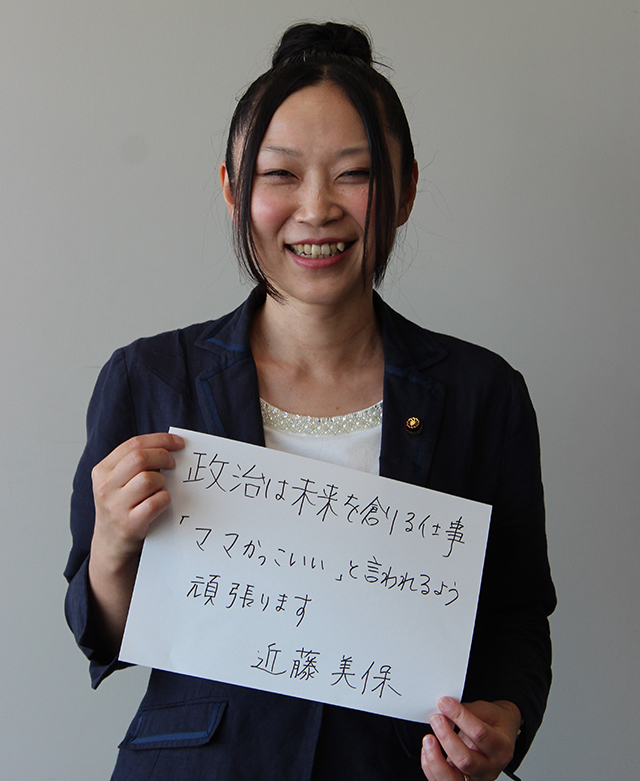 政治は未来を創りる仕事
「ママかっこいい」と言われるよう
頑張ります
近藤美保